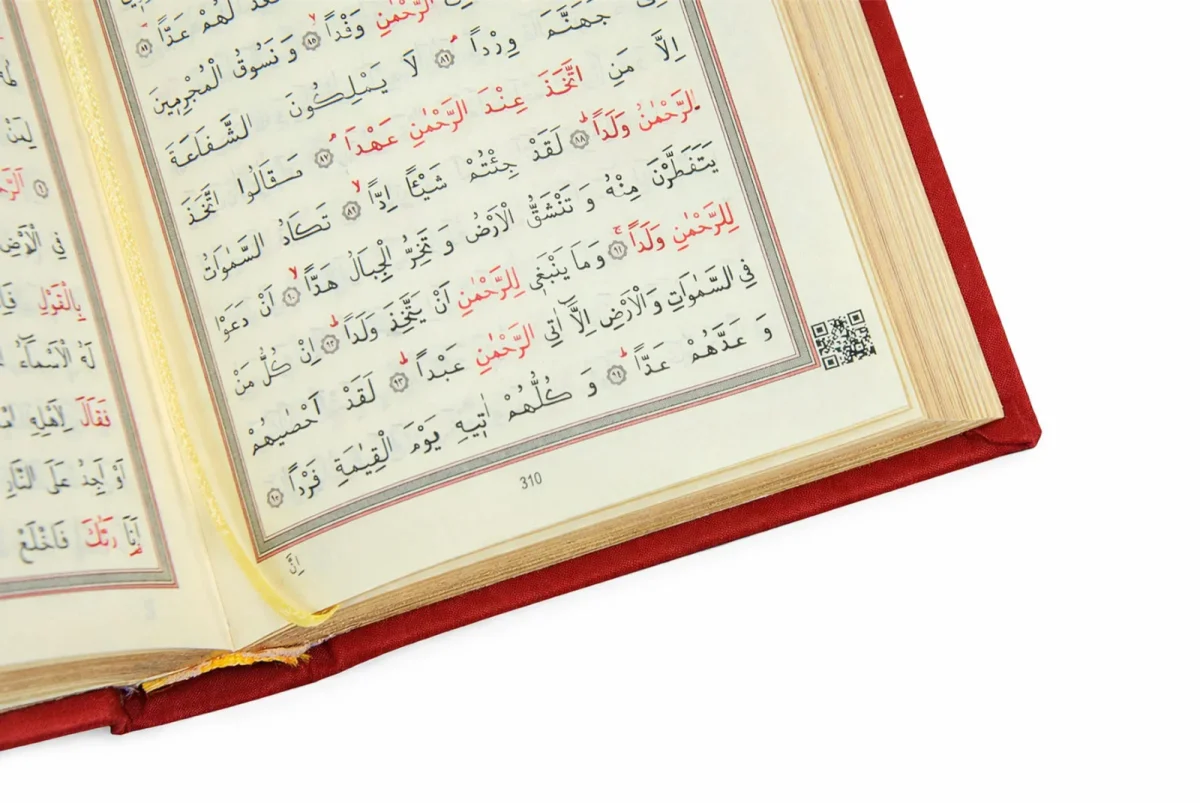 لَهُمْ عَدًّاۚ ﴿٨٤﴾
الرَّحْمٰنِ وَفْدًاۙ ﴿٨٥﴾ وَنَسُوقُ الْمُجْرِمٖينَ
جَهَنَّمَ وِرْدًاۘ ﴿٨٦﴾ لَا يَمْلِكُونَ الشَّفَاعَةَ
اِلَّا مَنِ اتَّخَذَ عِنْدَ الرَّحْمٰنِ عَهْدًاۘ ﴿٨٧﴾ وَقَالُوا اتَّخَذَ
الرَّحْمٰنُ وَلَدًاۜ ﴿٨٨﴾ لَقَدْ جِئْتُمْ شَيْـًٔا اِدًّاۙ ﴿٨٩﴾ تَكَادُ السَّمٰوَاتُ
يَتَفَطَّرْنَ مِنْهُ وَ تَنْشَقُّ الْاَرْضُ وَ تَخِرُّ الْجِبَالُ هَدًّاۙ ﴿٩٠﴾ اَنْ دَعَوْا
لِلرَّحْمٰنِ وَلَدًاۚ ﴿٩١﴾ وَمَا يَنْبَغٖي لِلرَّحْمٰنِ اَنْ يَتَّخِذَ وَلَدًاۜ ﴿٩٢﴾ اِنْ كُلُّ مَنْ
فِي السَّمٰوَاتِ وَالْاَرْضِ اِلَّٓا اٰتِي الرَّحْمٰنِ عَبْدًاۜ ﴿٩٣﴾ لَقَدْ اَحْصٰيهُمْ
وَ عَدَّهُمْ عَدًّاۜ ﴿٩٤﴾ وَ كُلُّهُمْ اٰتٖيهِ يَوْمَ الْقِيٰمَةِ فَرْدًا ﴿٩٥﴾
310
اِنَّ
لِمَنْ
فِي الْاَرْضِ
بِالْقَوْلِ
لَهُ الْاَسْمَٓاءُ
فَقَالَ لِاَهْلِهِ
اَوْ اَجِدُ عَلَى النَّارِ
اَنَا۬ رَبُّكَ فَاخْلَعْ